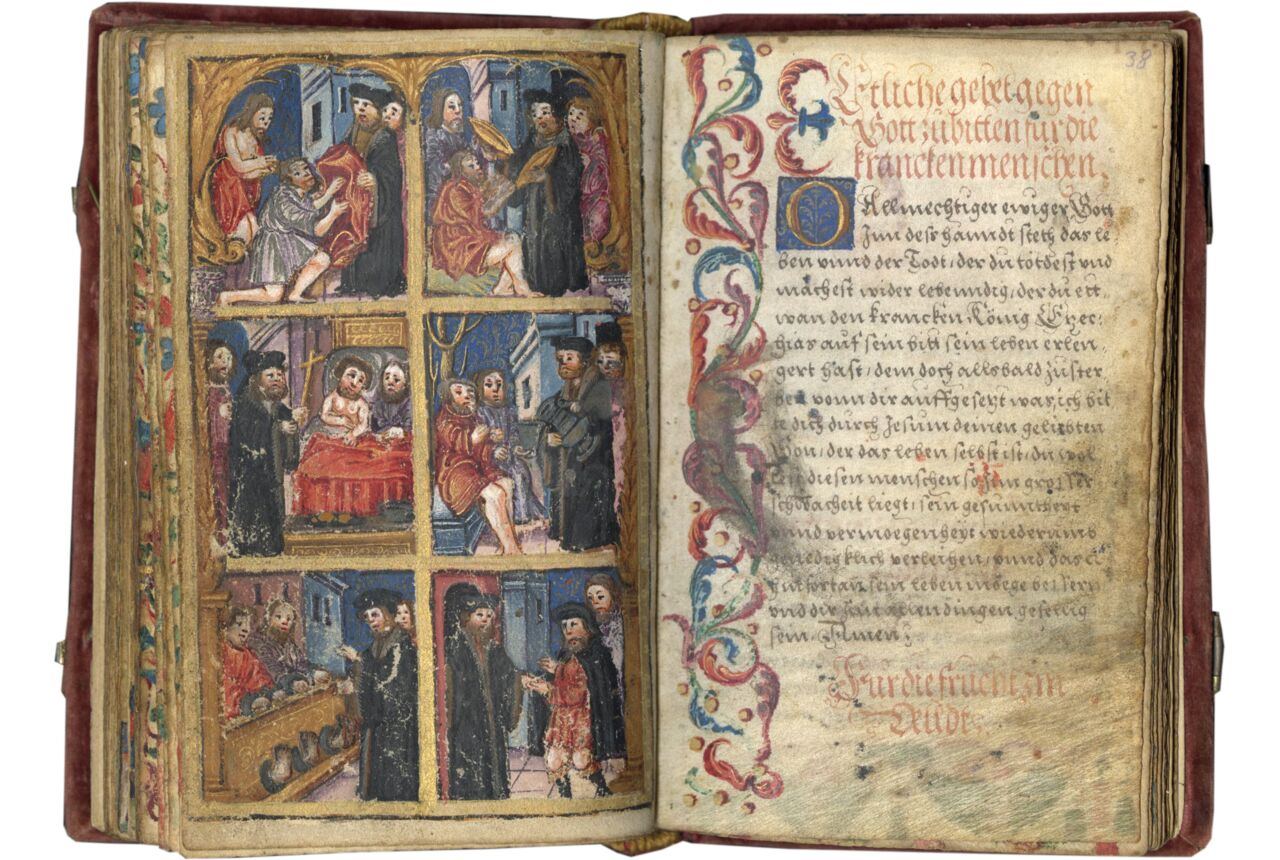 38
Etliche gebet gegen
Gott zu bitten fur die
krancken menschen.
O Allmechtiger ewiger Gott
Inn desz hanndt steth das le
ben vnnd der Todt, der du tötdest vnd
machest wider lebenndig, der du ett,
wan den krancken König Ezec,
gias auf sein bitt sein leben erlen,
gert hast, dem doch allsbald zuster
ben vonn dir auffgesetzt war, ich bit
te dich durch Jesum deinen geliebten
Son, der das leben selbst ist, du wol
lest diesen menschen so In grosser
schwacheit liegt, sein gesunntheyt
vnnd vermoegenheyt wiederumb
genedigklich verleihen, vnnd das Er
hinfortan sein leben möge bessern
vnd dir Inn allen dingen gefellig
sein. Amen;
Fur die frucht im
Veldt.